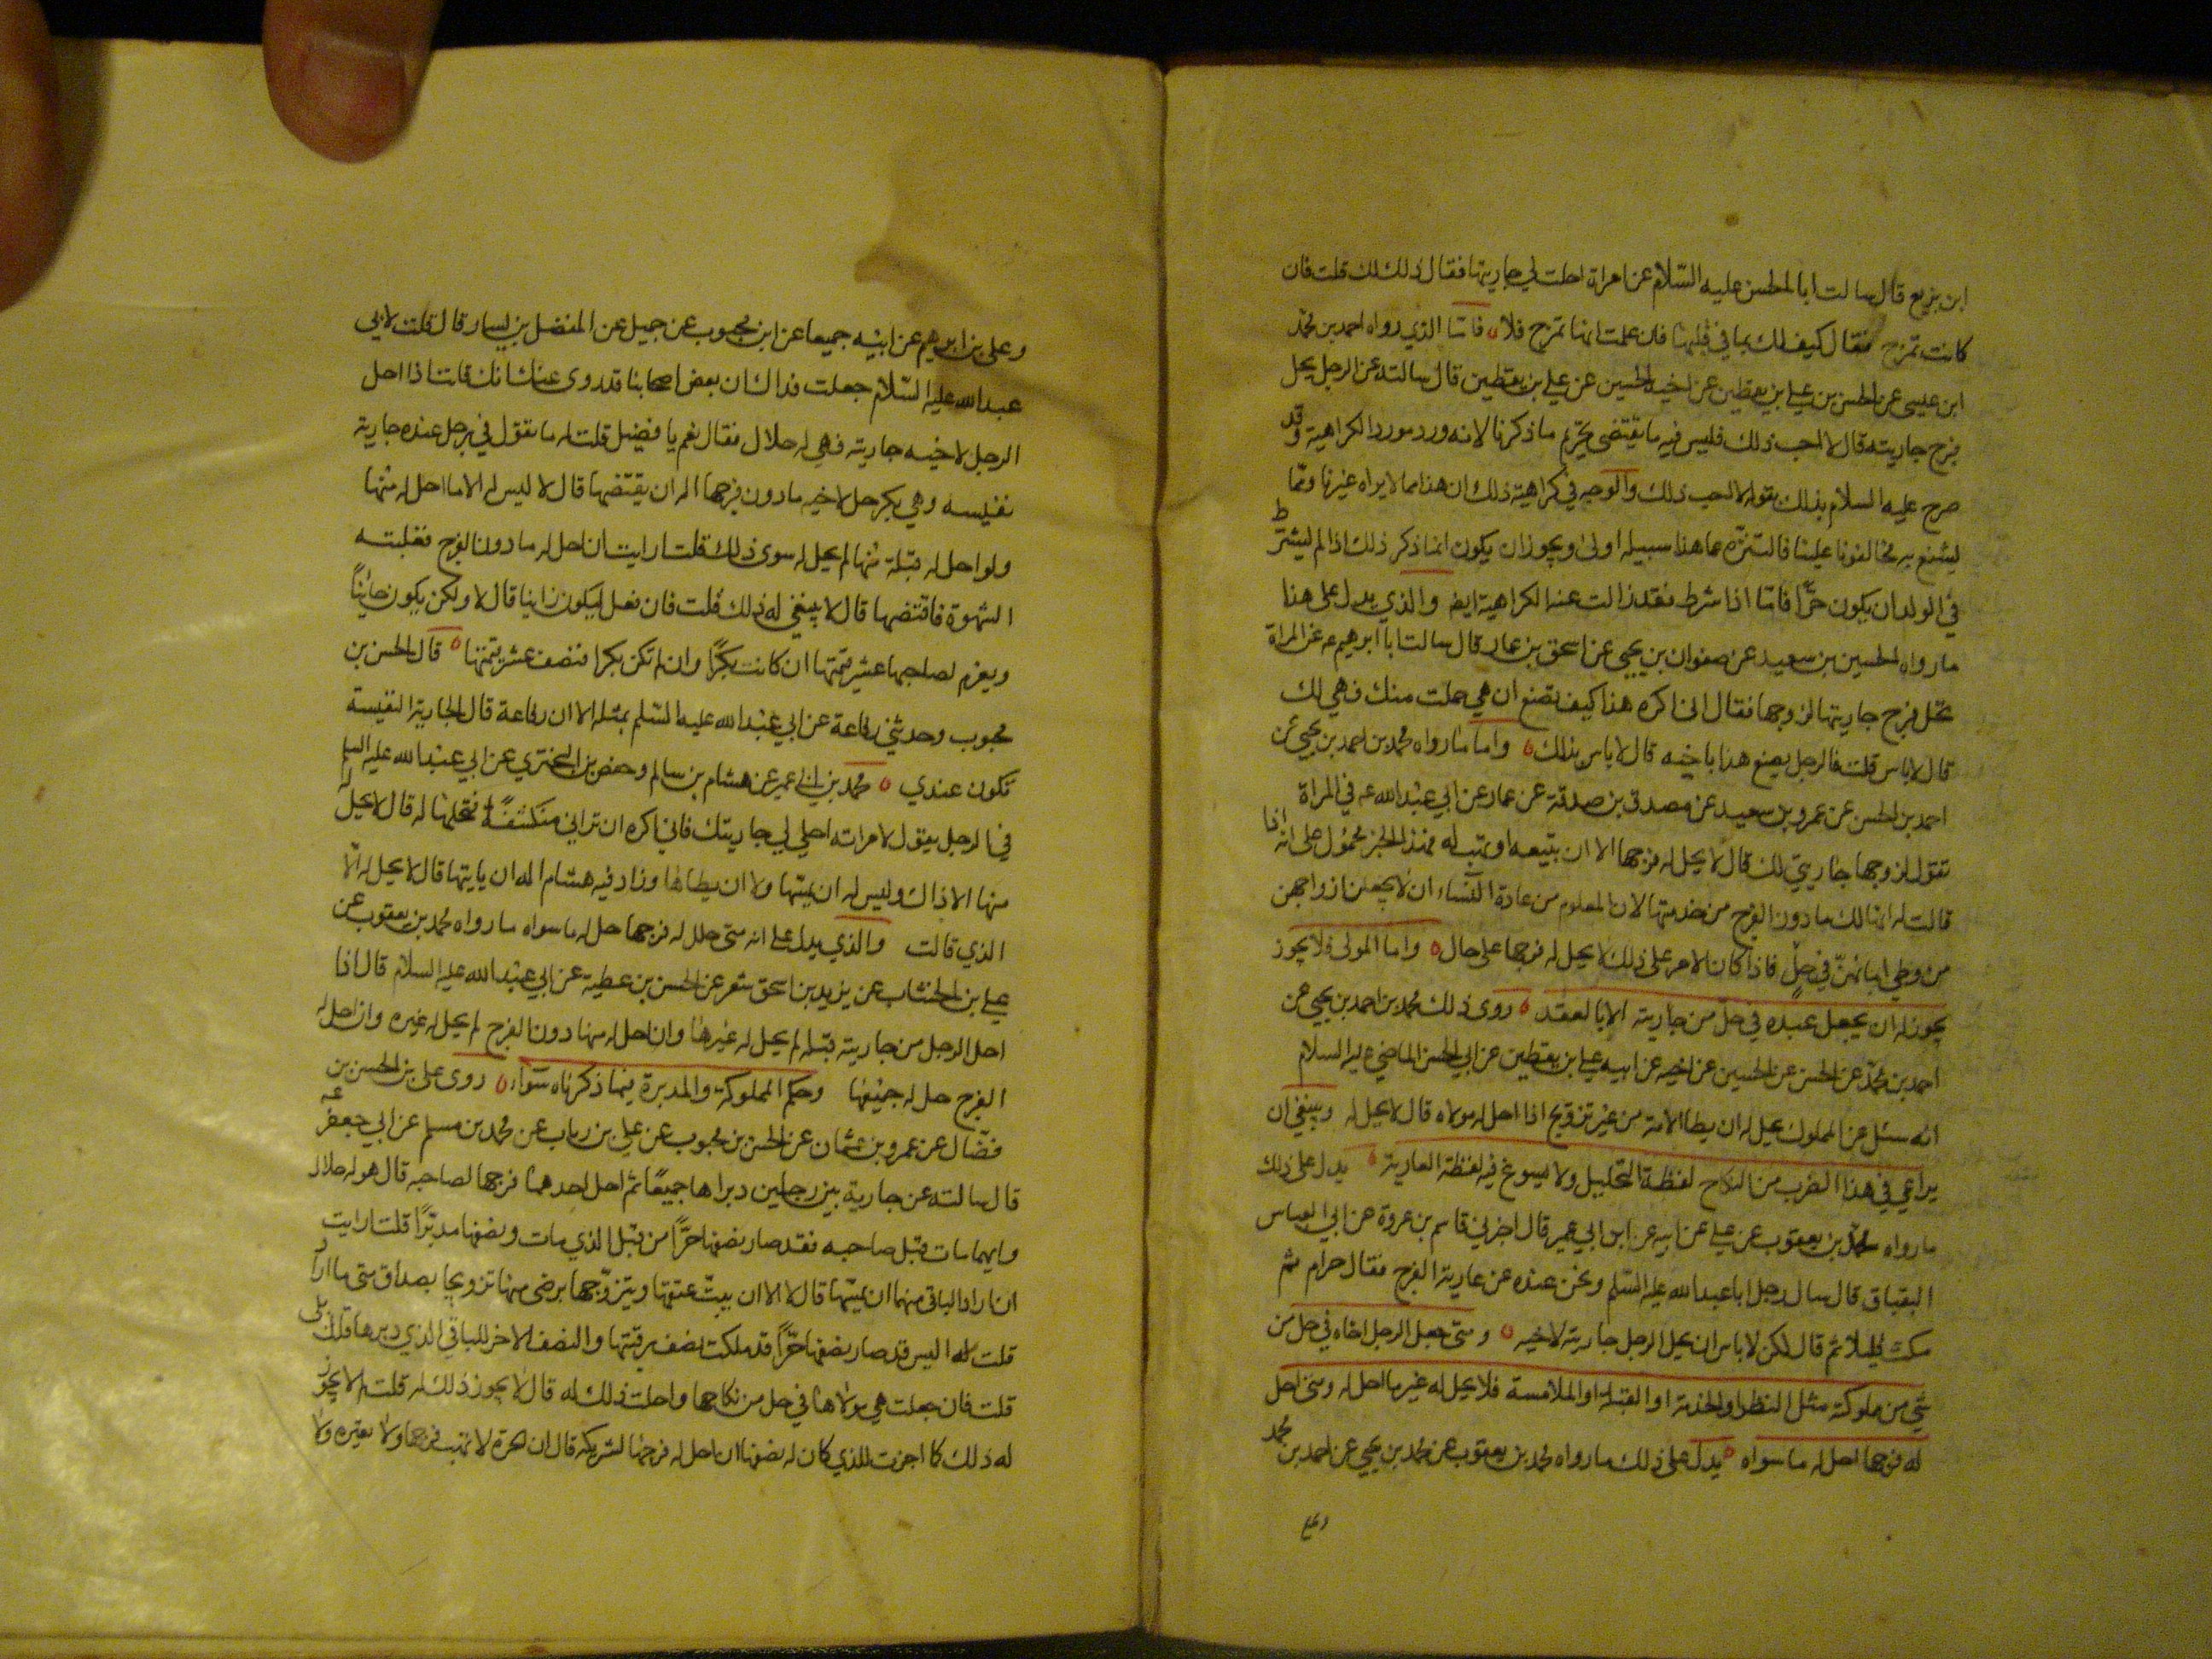 ابن بزيع قال سالت ابا الحسن عليه السّلام عن امراة احلت لي جاريتها فقال ذلك لك قلت فان
كانت تمزح فقال كيف لك بما في قلبها فان علمت انها تمزح فلا فامّا الذي رواه احمد بن محمّد
ابن عيسى عن الحسن بن علي بن يقطين عن اخيه الحسين عن علي بن يقطين قال سالته عن الرجل يحل
فرج جاريته قال لا احب ذلك فليس فيه ما يقتضى تحريم ما ذكرنا لانه ورد مورد الكراهية وقد
صرح عليه السلام بذلك بقوله لا احب ذلك والوجه في كراهية ذلك ان هذا مما لا يراه غيرنا وممّا
يشنع به مخالفونا علينا فالتنزّه عما هذا سبيله اولى ويجوز ان يكون انما ذكر ذلك اذا لم يشترط
في الولد ان يكون حرّا فامّا اذا شرط فقد زالت عنه الكراهية ايض والذي يدل على هذا
ما رواه الحسين بن سعيد عن صفوان بن يحيى عن اسحق بن عمار قال سالت ابا ابرهيم ع عن المراة
تحل فرج جاريتها لزوجها فقال انى اكره هذا كيف تصنع ان هي حملت منك فهي لك
قال لا باس قلت فالرجل يصنع هذا باخيه قال لا باس بذلك واما ما رواه محمد بن احمد بن يحيى عن
احمد بن الحسن عن عمرو بن سعيد عن مصدق بن صدقة عن عمار عن ابي عبد الله ع في المراة
تقول لزوجها جاريتي لك قال لا يحل له فرجها الا ان تبيعه او تهب له فهذا الخبر محمول على انه اذا
قالت له انها لك ما دون الفرج من خدمتها لان المعلوم من عادة النساء ان لا يجعلن ازواجهن
من وطي امائهنّ في حلّ فاذا كان الامر على ذلك لا يحل له فرجها على حال واما المولى فلا يجوز
يجوز له ان يجعل عبده في حلّ من جاريته الا بالعقد روى ذلك محمد بن احمد بن يحيى عن
احمد بن محمّد عن الحسن عن الحسين عن اخيه عن ابيه علي بن يقطين عن ابي الحسن الماضي عليه السلام
انه سئل عن المملوك يحل له ان يطا الامة من غير تزويج اذا احل له مولاه قال لا يحل له وينبغي ان
يراعي في هذا الضرب من النكاح لفظة التحليل ولا يسوغ فيه لفظة العارية يدل على ذلك
ما رواه محمّد بن يعقوب عن علي عن ابيه عن ابن ابي عمير قال اخبرني قاسم بن عروة عن ابي العباس
البقباق قال سال رجل ابا عبد الله عليه السّلم ونحن عنده عن عارية الفرج فقال حرام ثم
مكث قليلا ثم قال لكن لا باس ان يحل الرجل جاريته لاخيه ومتى جعل الرجل اخاه في حل من
شي من مملوكته مثل النظر او الخدمة او القبلة او الملامسة فلا يحل له غير ما احل له ومتى احل
له فرجها احل له ما سواه يدل على ذلك ما رواه محمد بن يعقوب عن محمد بن يحيى عن احمد بن محمد
وعلي
وعلى بن ابرهيم عن ابيه جميعا عن ابن محبوب عن جميل عن الفضيل بن يسار قال قلت لابي
عبد الله عليه السّلام جعلت فداك ان بعض اصحابنا قد روى عنك انك قلت اذا احل
الرجل لاخيه جاريته فهي له حلال فقال نعم يا فضيل قلت له ما تقول في رجل عنده جارية
نفيسه وهي بكر حل لاخيه ما دون فرجها اله ان يقتضها قال لا ليس له الا ما احل له منها
ولو احل له قبلة منها لم يحل له سوى ذلك قلت ارايت ان احل له ما دون الفرج فغلبته
الشهوة فاقتضها قال لا ينبغي له ذلك قلت فان فعل ايكون زانيا قال لا ولكن يكون خائناً
ويغرم لصاحبها عشر قيمتها ان كانت بكرًا وان لم تكن بكرا فنصف عشر قيمتها قال الحسن بن
محبوب وحدثني رفاعة عن ابي عبد الله عليه السّلم بمثله الا ان رفاعة قال الجارية النفيسة
تكون عندي محمد بن ابي عمير عن هشام بن سالم وحفص بن البختري عن ابي عبد الله عليه السلم
في الرجل يقول لامراته احلي لي جاريتك فاني اكره ان تراني منكشفًا فتحلها له قال لا يحل له
منها الا ذاك وليس له ان يمسّها ولا ان يطاها وزاد فيه هشام اله ان ياتيها قال لا يحل له الّا
الذي قالت والذي يدل على انه متى حلل له فرجها حل له ما سواه ما رواه محمد بن يعقوب عن
علي بن الخشاب عن يزيد بن اسحق شعر عن الحسن بن عطية عن ابي عبد الله عليه السلام قال اذا
احل الرجل من جاريته قبلة لم يحل له غيرها وان احل له منها دون الفرج لم يحل له غيره وان احل له
الفرج حل له جميعها وحكم المملوكة والمدبرة فيما ذكرناه سوآء روى على بن الحسن بن
فضّال عن عمرو بن عثمان عن الحسن بن محبوب عن علي بن رياب عن محمد بن مسلم عن ابي جعفر ع
قال سالته عن جارية بين رجلين دبراها جميعًا ثم احل احدهما فرجها لصاحبه قال هو له حلال
وايهما مات قبل صاحبه فقد صار نصفها حرًّا من قبل الذي مات ونصفها مدبّرًا قلت ارايت
ان اراد الباقي منهما ان يمسّها قال لا الا ان يبتّ عتقها ويتزوّجها برضى منها تزويجا بصداق متى ما اراد
قلت له اليس قد صار نصفها حرًّا قد ملكت نصف رقبتها والنصف الاخر للباقي الذي دبرها قال بلى
قلت فان جعلت هي مولاها في حل من نكاحها واحلت ذلك له قال لا يجوز ذلك له قلت لم لا يجوز
له ذلك كما اجزت للذي كان له نصفها ان احل له فرجها لشريكه قال ان الحرة لا تهب فرجها ولا تعيره ولا